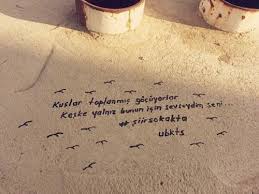 Kuşlar toplanmış göçüyorlar
Keşke yalnız bunun için sevseydim seni...
#şiirsokakta
ubkts